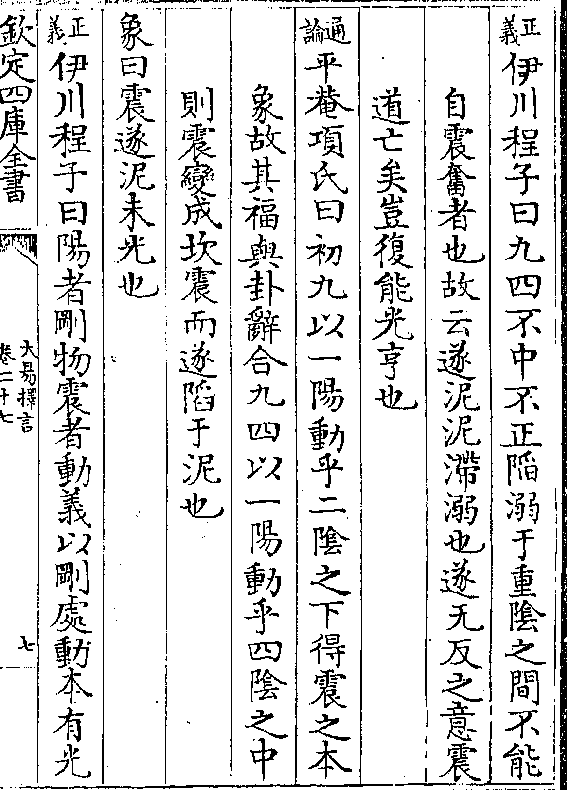 正義伊川程子曰九四不中不正陷溺于重陰之間不能
自震奮者也故云遂泥泥滯溺也遂无反之意震
道亡矣豈復能光亨也
通論平菴項氏曰初九以一陽動乎二陰之下得震之本
象故其福與卦辭合九四以一陽動乎四陰之中
則震變成坎震而遂陷于泥也
象曰震遂泥未光也
正義伊川程子曰陽者剛物震者動義以剛處動本有光
欽定四庫全書
大易擇言
卷二十七
七